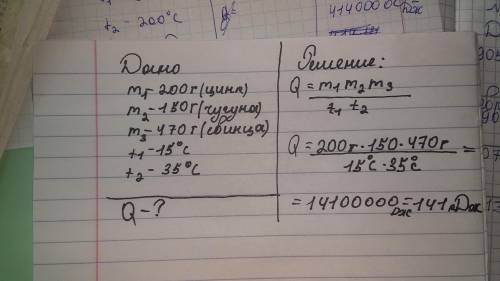 t₂ - 200°C
4140000 Дж
Дано
m₁ - 200 г (цинк)
m₂ - 150 г (чугуна)
m₃ - 470 г (свинца)
t₁ - 15°C
t₂ - 35°C
Q - ?
Решение:
Q = m₁ m₂ m₃ / t₁ t₂
Q = 200г · 150 · 470г / 15°C · 35°C =
= 14100000 Дж = 141 кДж